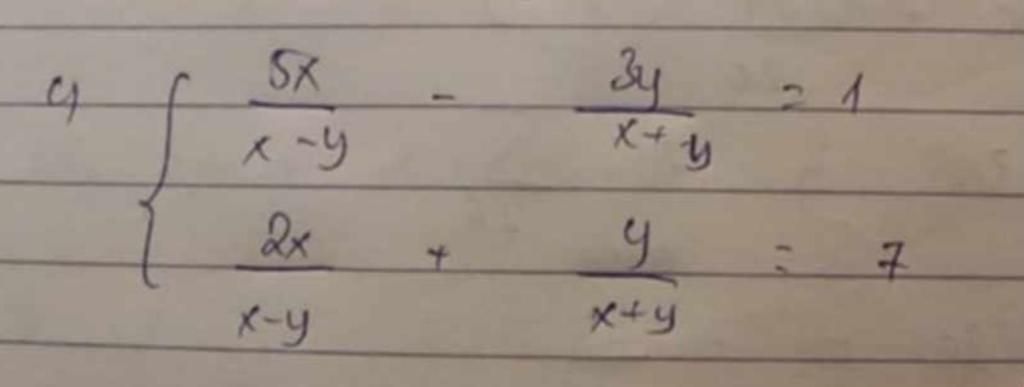 c) { 5x/(x-y) - 3y/(x+y) = 1
2x/(x-y) + y/(x+y) = 7